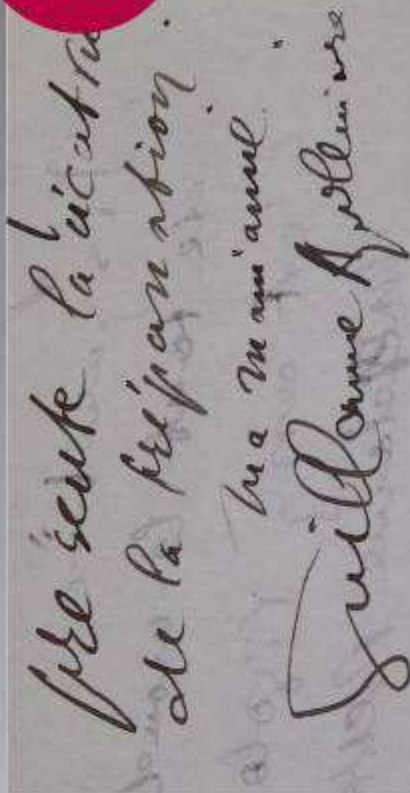 présente la cicatrice
de la trépanation.
ma main amie
Guillaume Apollinaire